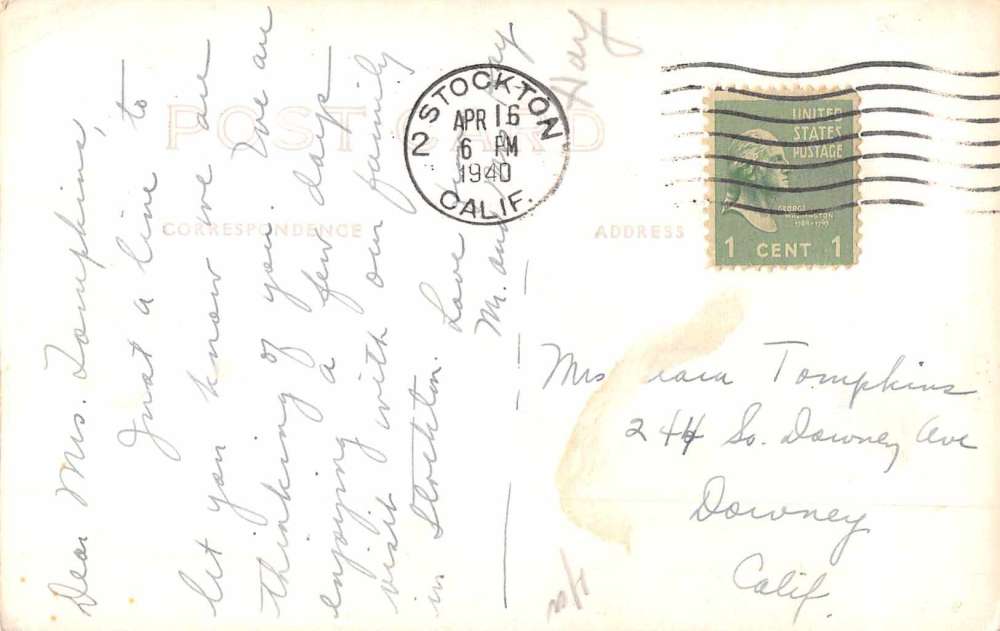 POST CARD
CORRESPONDENCE
ADDRESS
Dear Mrs. Tompkins,
Just a line to
let you know we are
thinking of you. We are
enjoying a few days
visit with our family
in Stockton.
Love
M. and
Hay
STOCKTON
APR 16
6 PM
1940
2
CALIF.
UNITED
STATES
POSTAGE
GEORGE
WASHINGTON
1789-1797
1 CENT 1
Mrs Tompkins
244 So. Downey Ave
Downey
Calif.